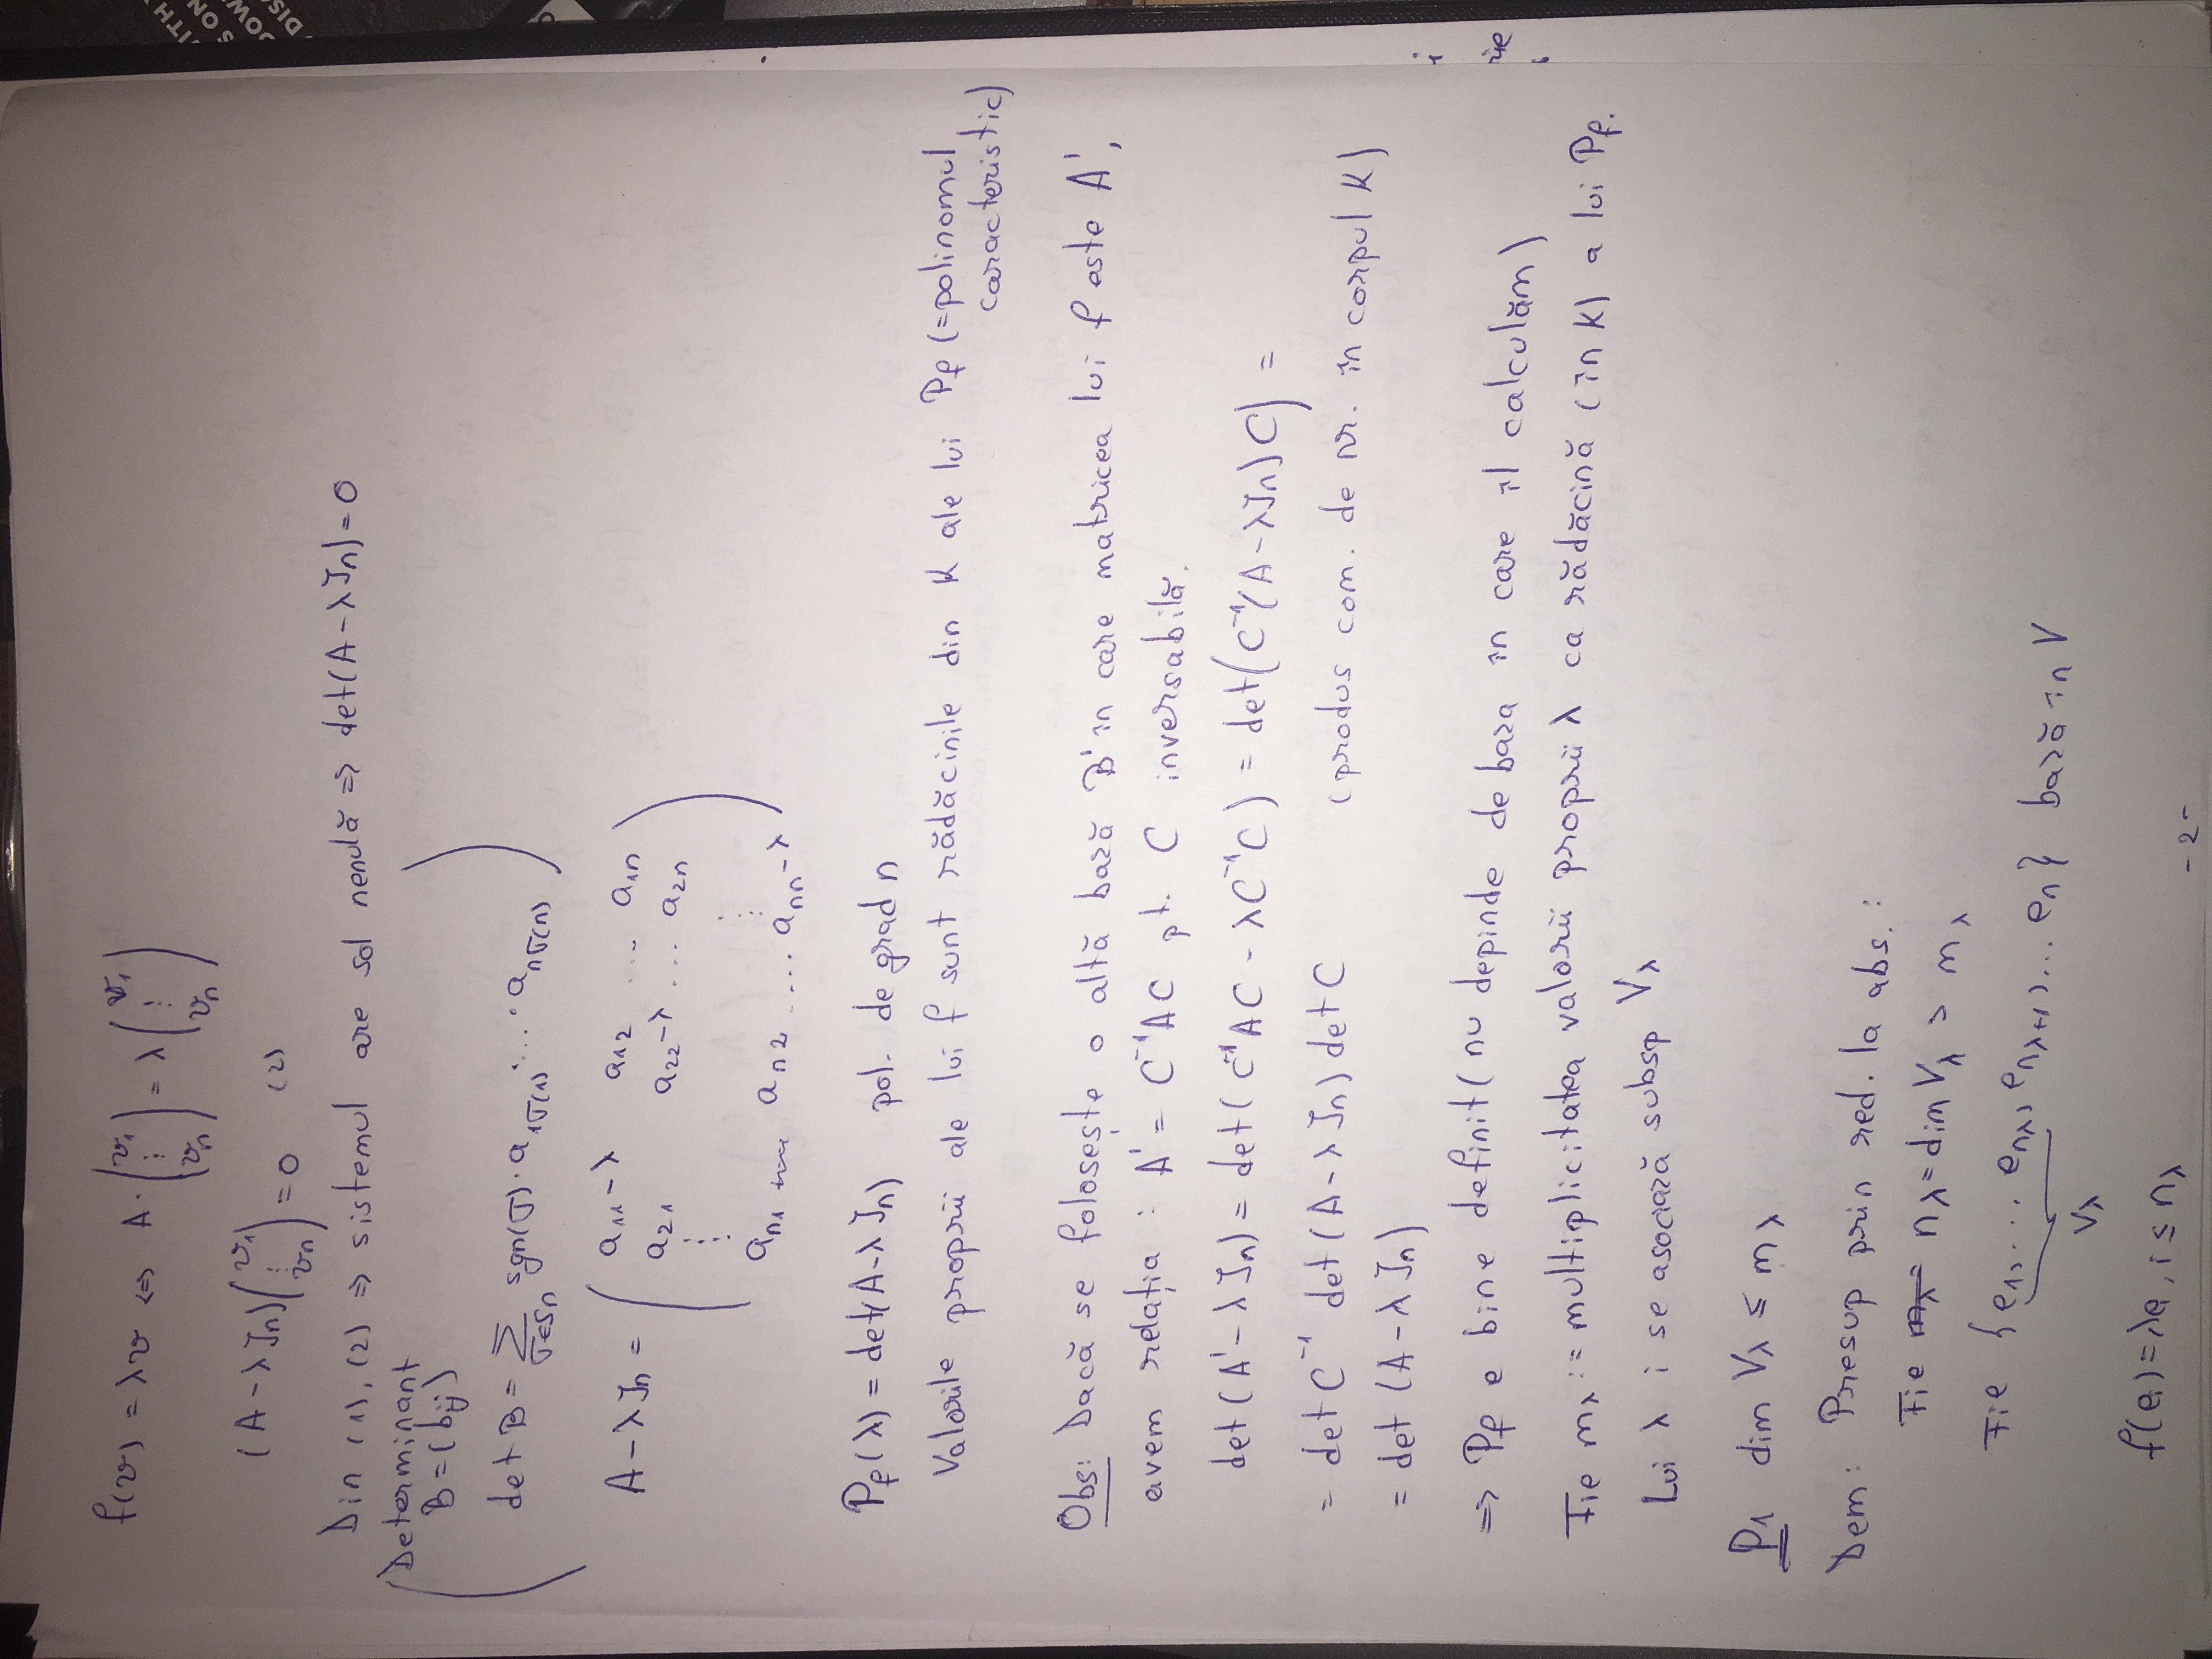 f(v) = λv ⇔ A · (v₁ ⋮ vₙ) = λ (v₁ ⋮ vₙ)
(A − λIₙ) (v₁ ⋮ vₙ) = 0 (2)
Din (1), (2) ⇒ sistemul are sol nenulă ⇒ det(A − λIₙ) = 0
Determinant
B = (bij)
det B = Σ_{σ∈Sₙ} sgn(σ) · a_{1σ(1)} · … · a_{nσ(n)}
A − λIₙ = ( a₁₁ − λ a₁₂ … a₁ₙ
a₂₁ a₂₂ − λ … a₂ₙ
⋮ ⋮
aₙ₁ aₙ₂ …. aₙₙ − λ )
P_f(λ) = det(A − λIₙ) pol. de grad n
Valorile proprii ale lui f sunt rădăcinile din K ale lui P_f (=polinomul
caracteristic)
Obs: Dacă se folosește o altă bază B' în care matricea lui f este A',
avem relația : A' = C⁻¹AC pt. C inversabilă.
det(A' − λIₙ) = det(C⁻¹AC − λC⁻¹C) = det(C⁻¹(A − λIₙ)C) =
= det C⁻¹ det(A − λIₙ) det C (produs com. de nr. în corpul K)
= det (A − λIₙ)
⇒ P_f e bine definit (nu depinde de baza în care îl calculăm)
Fie m_λ := multiplicitatea valorii proprii λ ca rădăcină (în K) a lui P_f.
Lui λ i se asociază subsp V_λ
P1 dim V_λ ≤ m_λ
Dem: Presup prin red. la abs. :
Fie m_λ = n_λ = dim V_λ > m_λ
Fie {e₁, … e_{nλ}, e_{nλ+1}, … eₙ} bază în V
V_λ
f(eᵢ) = λeᵢ, i ≤ n_λ
- 2 -